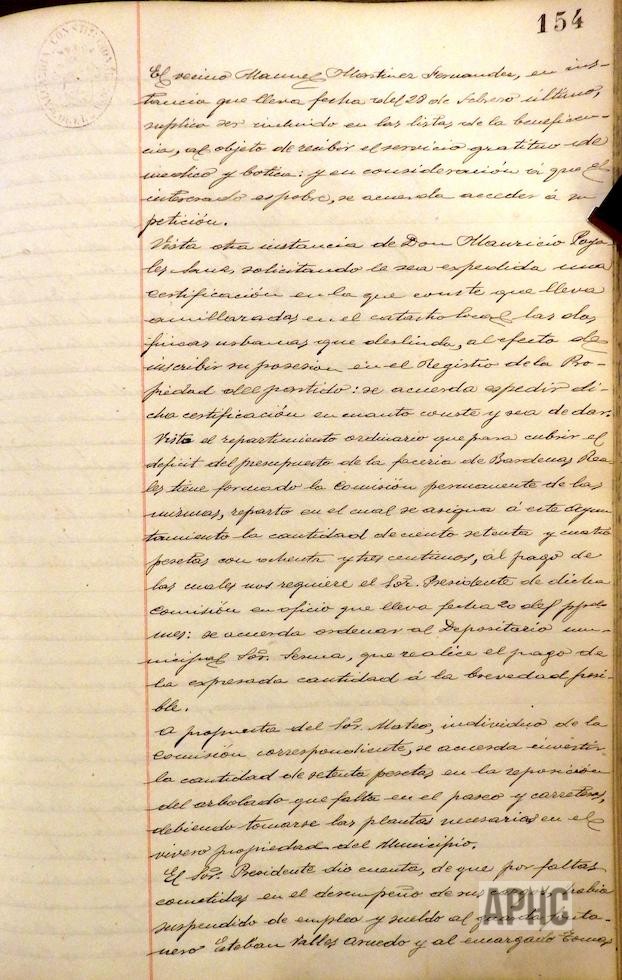 154
El vecino Manuel Martinez Fernandez, en ins-
tancia que lleva fecha del 28 de febrero último,
suplica ser incluido en las listas de la beneficen-
cia, al objeto de recibir el servicio gratituo de
medico y botica: y en consideración á que el
interesado es pobre, se acuerda acceder á su
petición.
Vista otra instancia de Don Mauricio Paga-
les solicitando le sea expedida una
certificación en la que conste que lleva
amillaradas en el catastro local las dos
fincas urbanas que deslinda, al efecto de
inscribir su posesion en el Registro de la Pro-
piedad del partido: se acuerda expedir di-
cha certificación en cuanto conste y sea de dar.
Vista el repartimiento ordinario que para cubrir el
deficit del presupuesto de la faceria de Bardenas Rea-
les tiene formado la Comisión permanente de las
mismas, reparto en el cual se asigna á este Ayun-
tamiento la cantidad de ciento setenta y cuatro
pesetas con ochenta y tres centimos, al pago de
las cuales nos requiere el Sor. Presidente de dicha
Comisión en oficio que lleva fecha 20 del ppdo.
mes: se acuerda ordenar al Depositario mu-
nicipal Sor. Sesma, que realice el pago de
la expresada cantidad á la brevedad posi-
ble.
A propuesta del Sor. Mateo, individuo de la
Comisión correspondiente, se acuerda invertir
la cantidad de setenta pesetas en la reposición
del arbolado que falta en el paseo y carreteras,
debiendo tomarse las plantas necesarias en el
vivero propiedad del Municipio.
El Sor. Presidente dio cuenta, de que por faltas
cometidas en el desempeño de sus cargos, habia
suspendido de empleo y sueldo al guarda
Esteban Valles Arnedo y al encargado Tomas
APHC